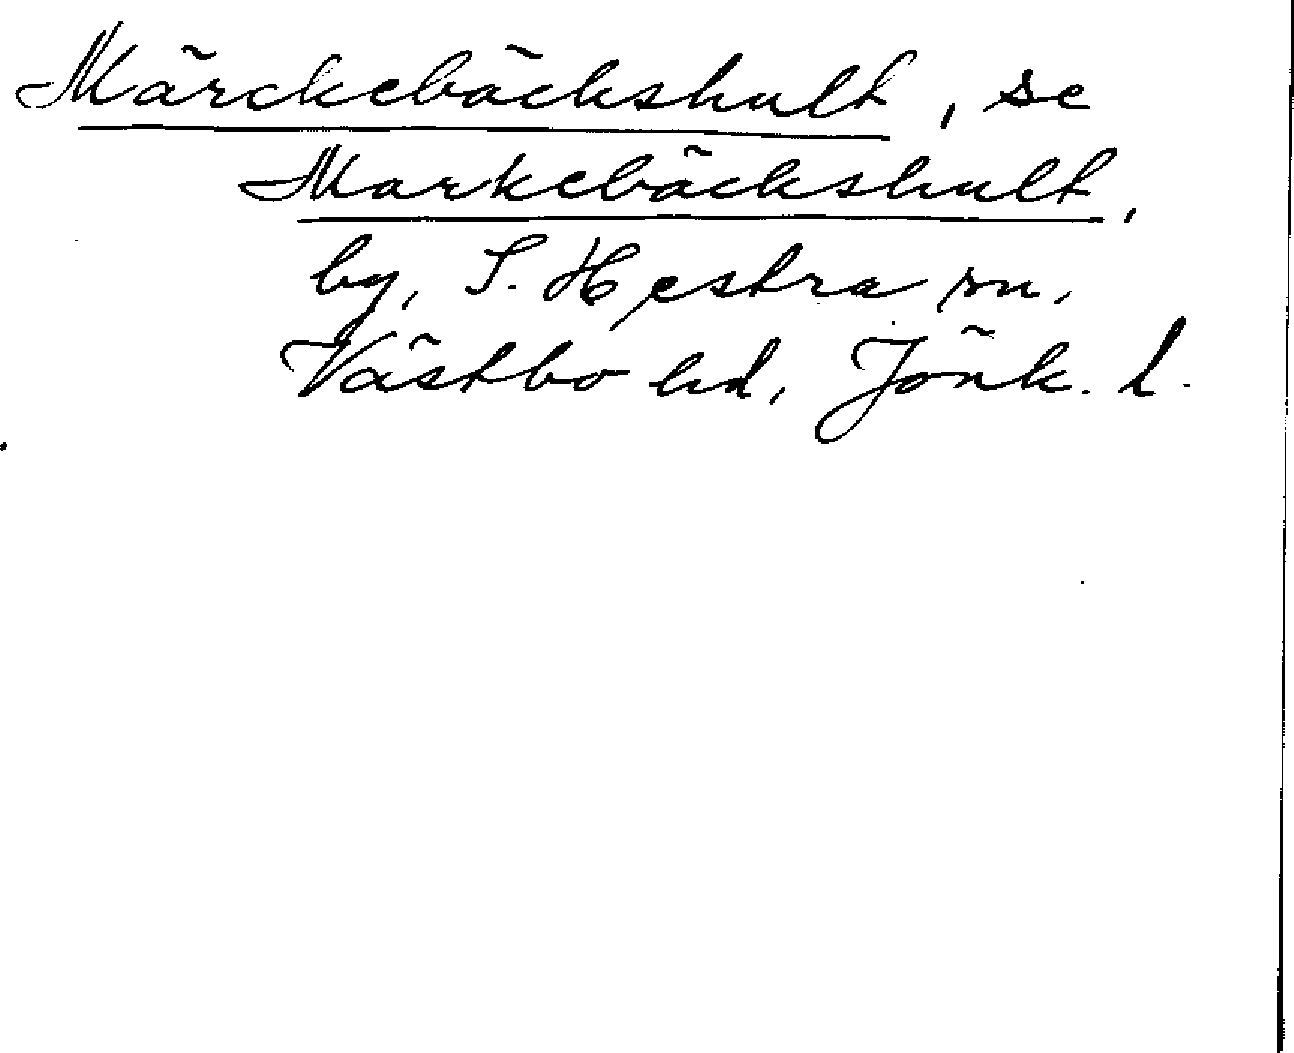 Märckebäckshult, se
Markebäckshult,
by, S. Hestra sn,
Västbo hd, Jönk. l.